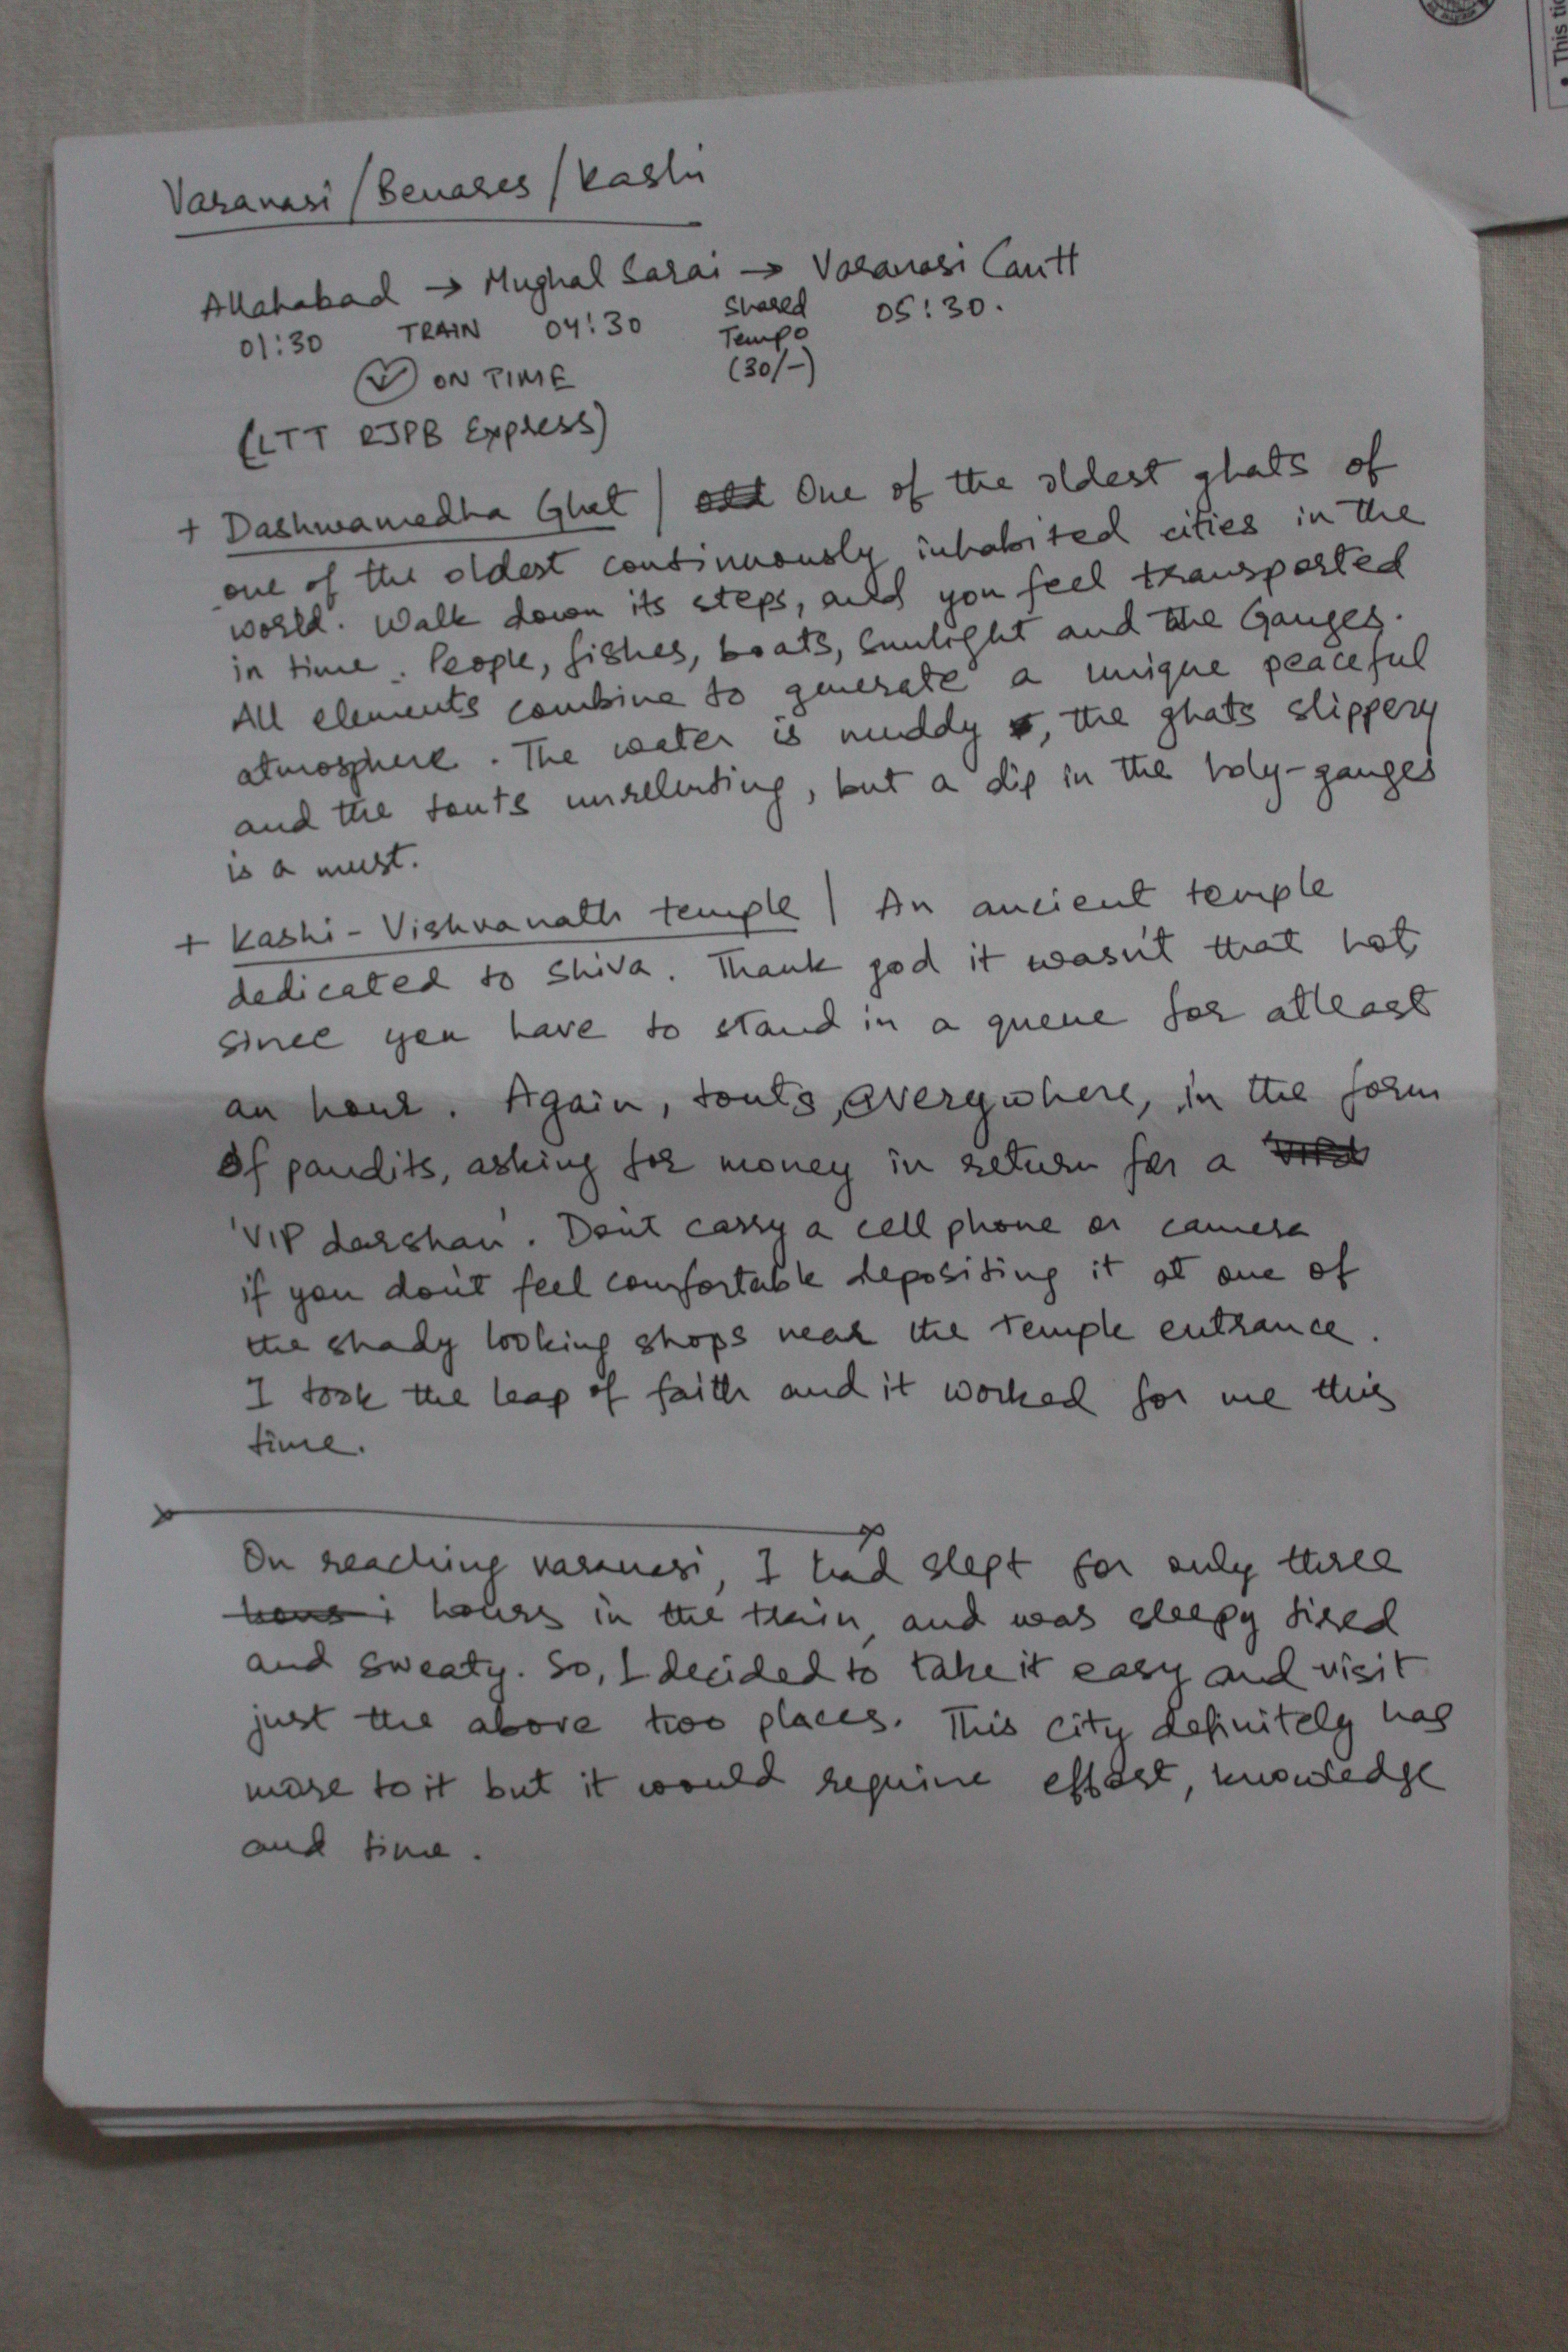 Varanasi / Benares / Kashi
Allahabad → Mughal Sarai → Varanasi Cantt
01:30 TRAIN 04:30 Shared Tempo (30/-) 05:30.
ON TIME
(LTT RJPB Express)
+ Dashwamedha Ghat | One of the oldest ghats of
one of the oldest continuously inhabited cities in the
world. Walk down its steps, and you feel transported
in time. People, fishes, boats, sunlight and the Ganges.
All elements combine to generate a unique peaceful
atmosphere. The water is muddy, the ghats slippery
and the touts unrelenting, but a dip in the holy-ganges
is a must.
+ Kashi-Vishvanath temple | An ancient temple
dedicated to Shiva. Thank god it wasn't that hot,
since you have to stand in a queue for atleast
an hour. Again, touts, everywhere, in the form
of pandits, asking for money in return for a
'VIP darshan'. Don't carry a cell phone or camera
if you don't feel comfortable depositing it at one of
the shady looking shops near the temple entrance.
I took the leap of faith and it worked for me this
time.
On reaching varanasi, I had slept for only three
hours in the train, and was sleepy tired
and sweaty. So, I decided to take it easy and visit
just the above two places. This city definitely has
more to it but it would require effort, knowledge
and time.
This tic